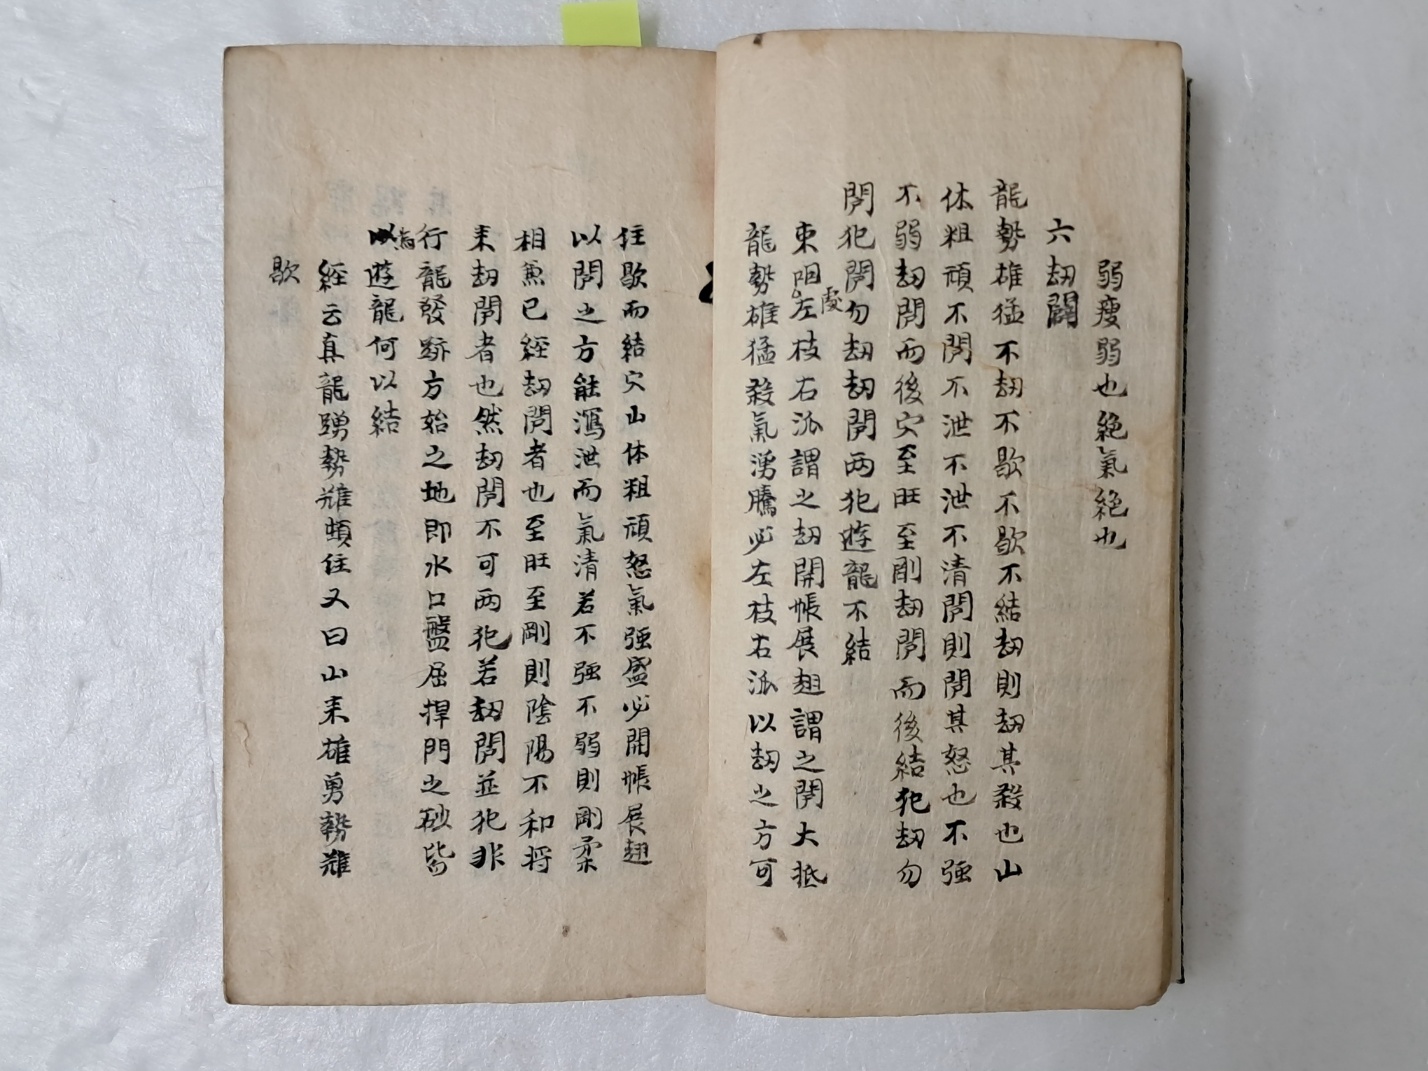 弱瘦弱也絕氣絕也
六刼闢
龍勢雄猛不刼不歇不歇不結刼則刼其殺也山
体粗頑不閞不泄不泄不清閞則閞其怒也不強
不弱刼閞而後穴至旺至剛刼閞而後結犯刼勿
閞犯閞勿刼刼閞两犯遊龍不結
東咽處左枝右派謂之刼開帳展翅謂之閞大抵
龍勢雄猛殺氣湧騰必左枝右派以刼之方可
住歇而結穴山体粗頑怒氣强盛必開帳展翅
以閞之方能瀉泄而氣清若不强不弱則剛柔
相兼已經刼閞者也至旺至剛則陰陽不和将
来刼閞者也然刼閞不可两犯若刼閞並犯非
行龍發跡方始之地即水口盤屈捍門之砂皆
為遊龍何以結
經云真龍踴勢難頓住又曰山来雄勇勢難
歇